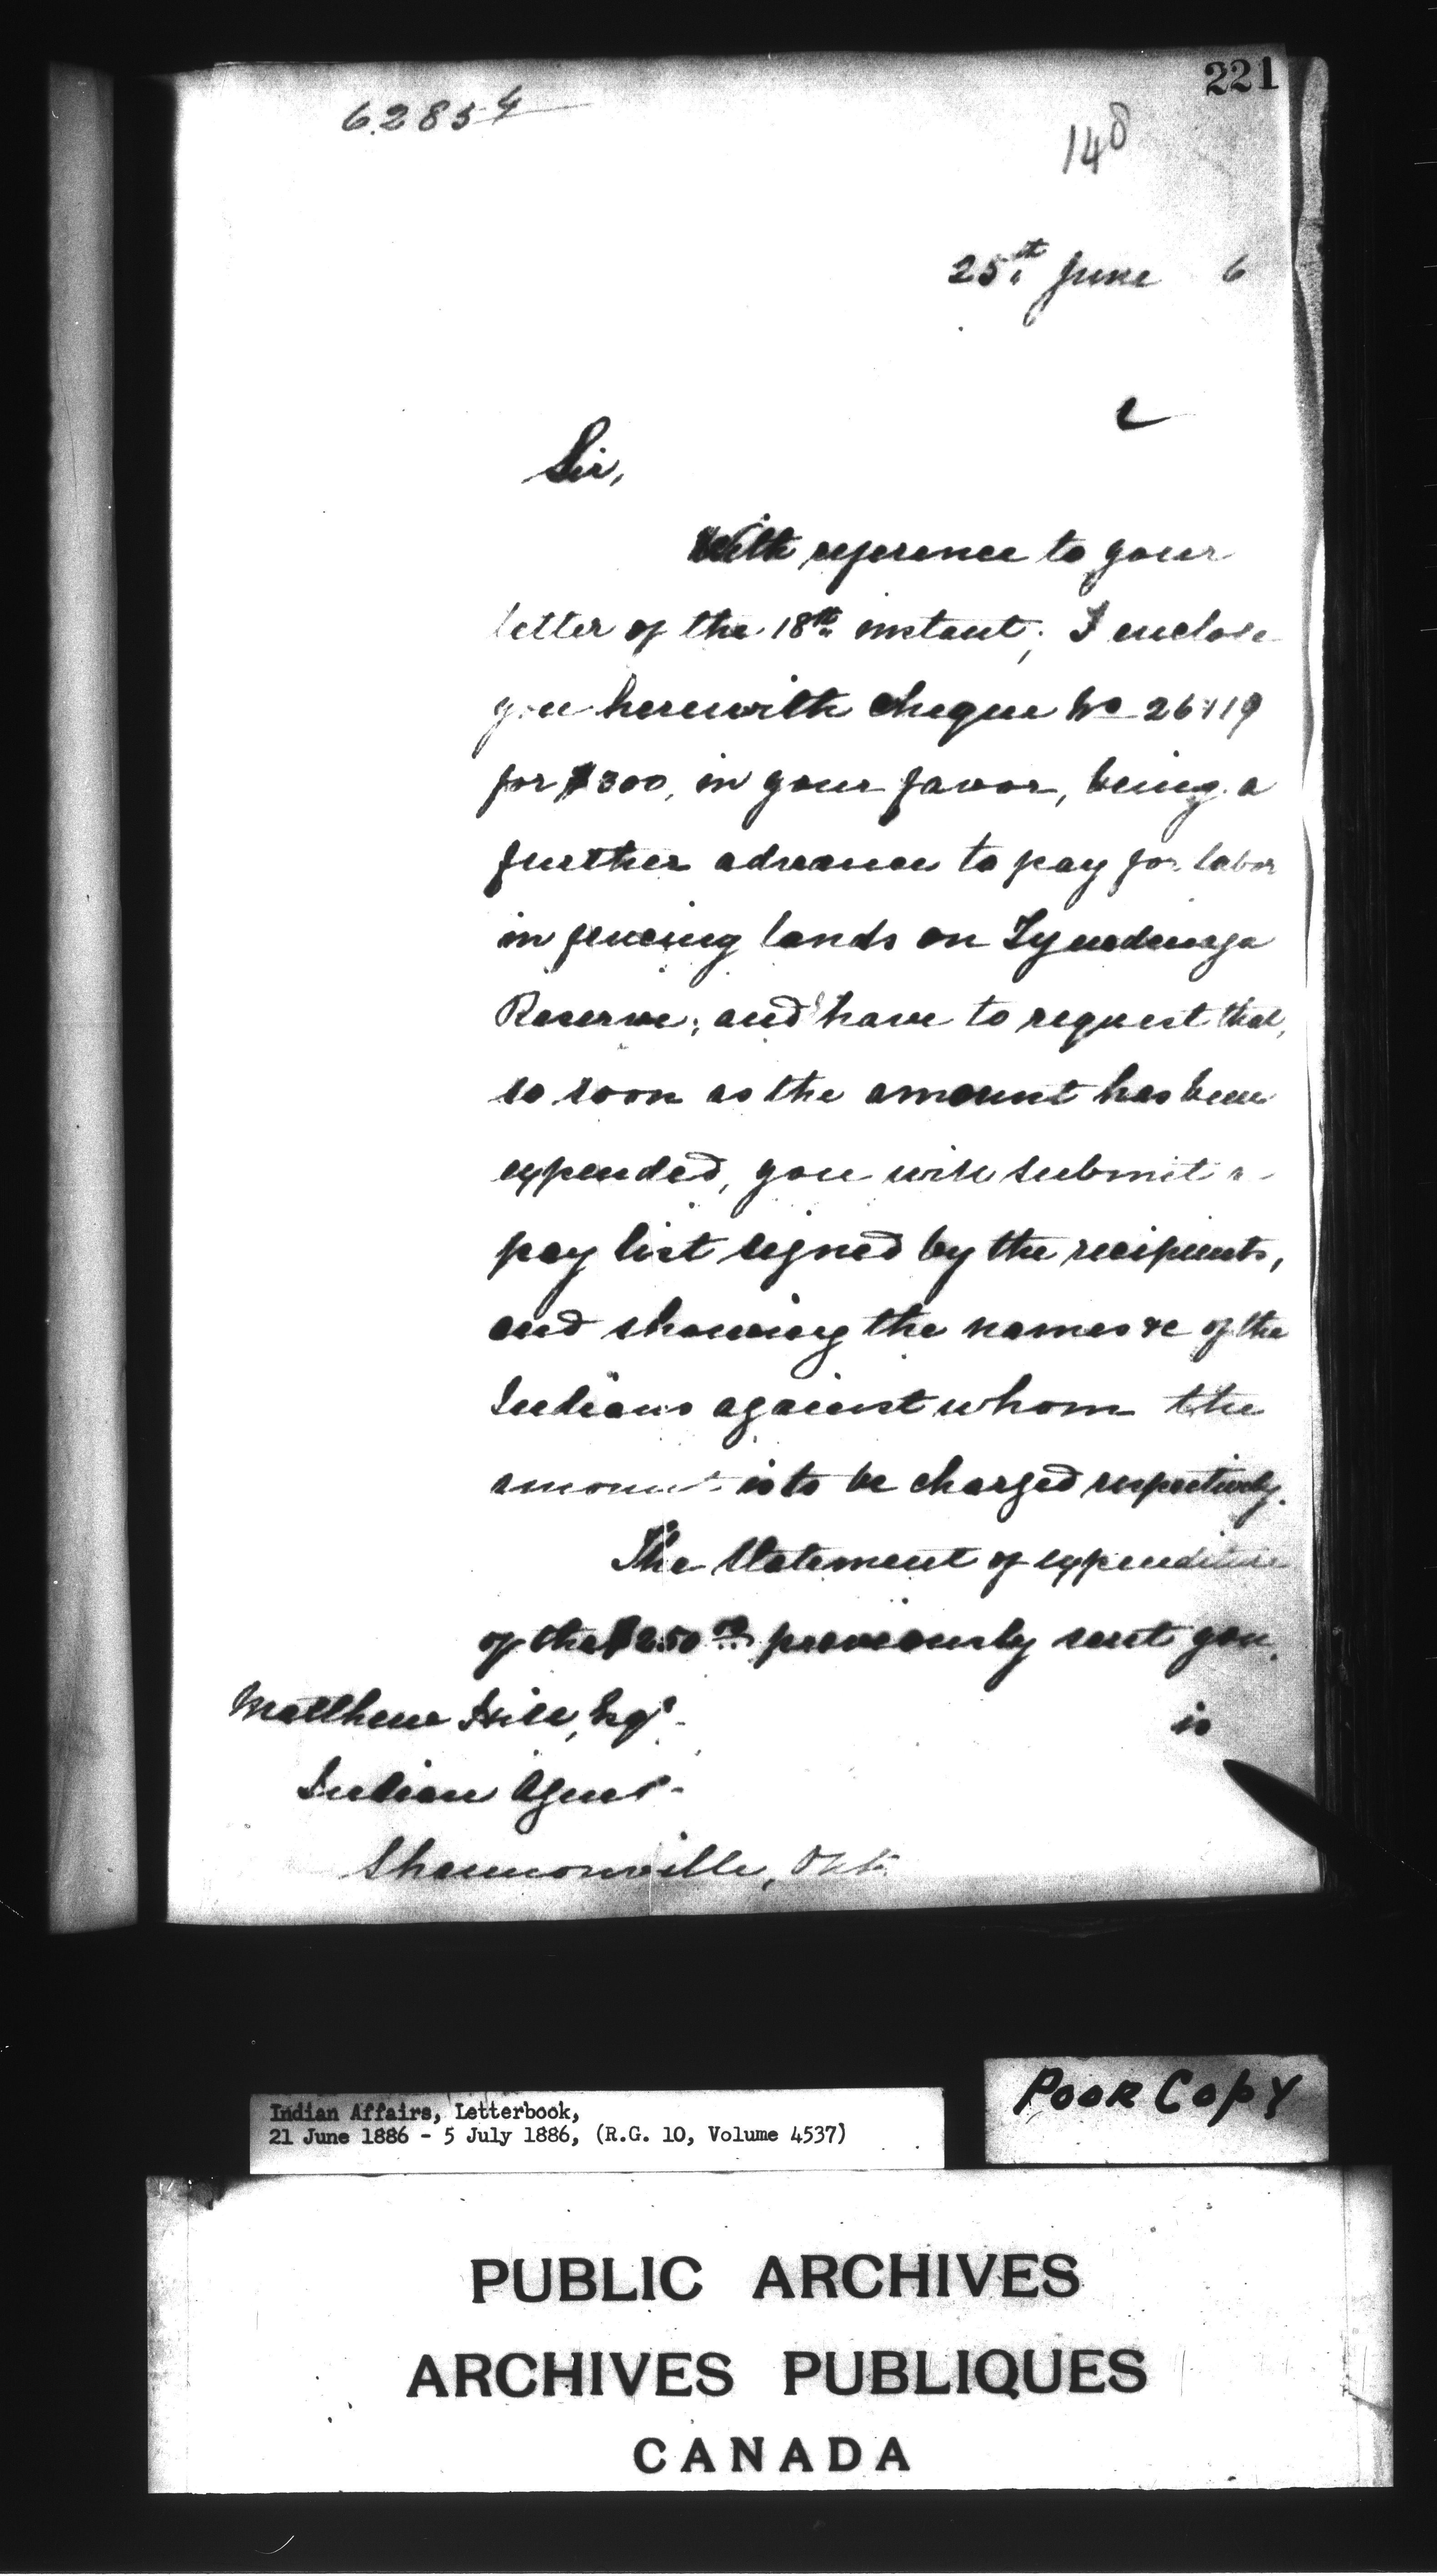 221
62854
148
25th June 6
Sir,
With reference to your
letter of the 18th instant; I enclose
you herewith cheque No
for $300, in your favor, being a
further advance to pay for labor
in fencing lands on Tyendinaga
Reserve; and have to request that,
so soon as the amount has been
expended, you will submit a
pay list signed by the recipients,
and showing the names &c of the
Indians against whom the
amount is to be charged respectively.
The Statement of expenditure
of the $250 00 previously sent you
is
Matthew Hill, Esqr
Indian Agent
Shannonville, Ont.
Poor Copy
Indian Affairs, Letterbook,
21 June 1886 - 5 July 1886, (R.G. 10, Volume 4537)
PUBLIC ARCHIVES
ARCHIVES PUBLIQUES
CANADA